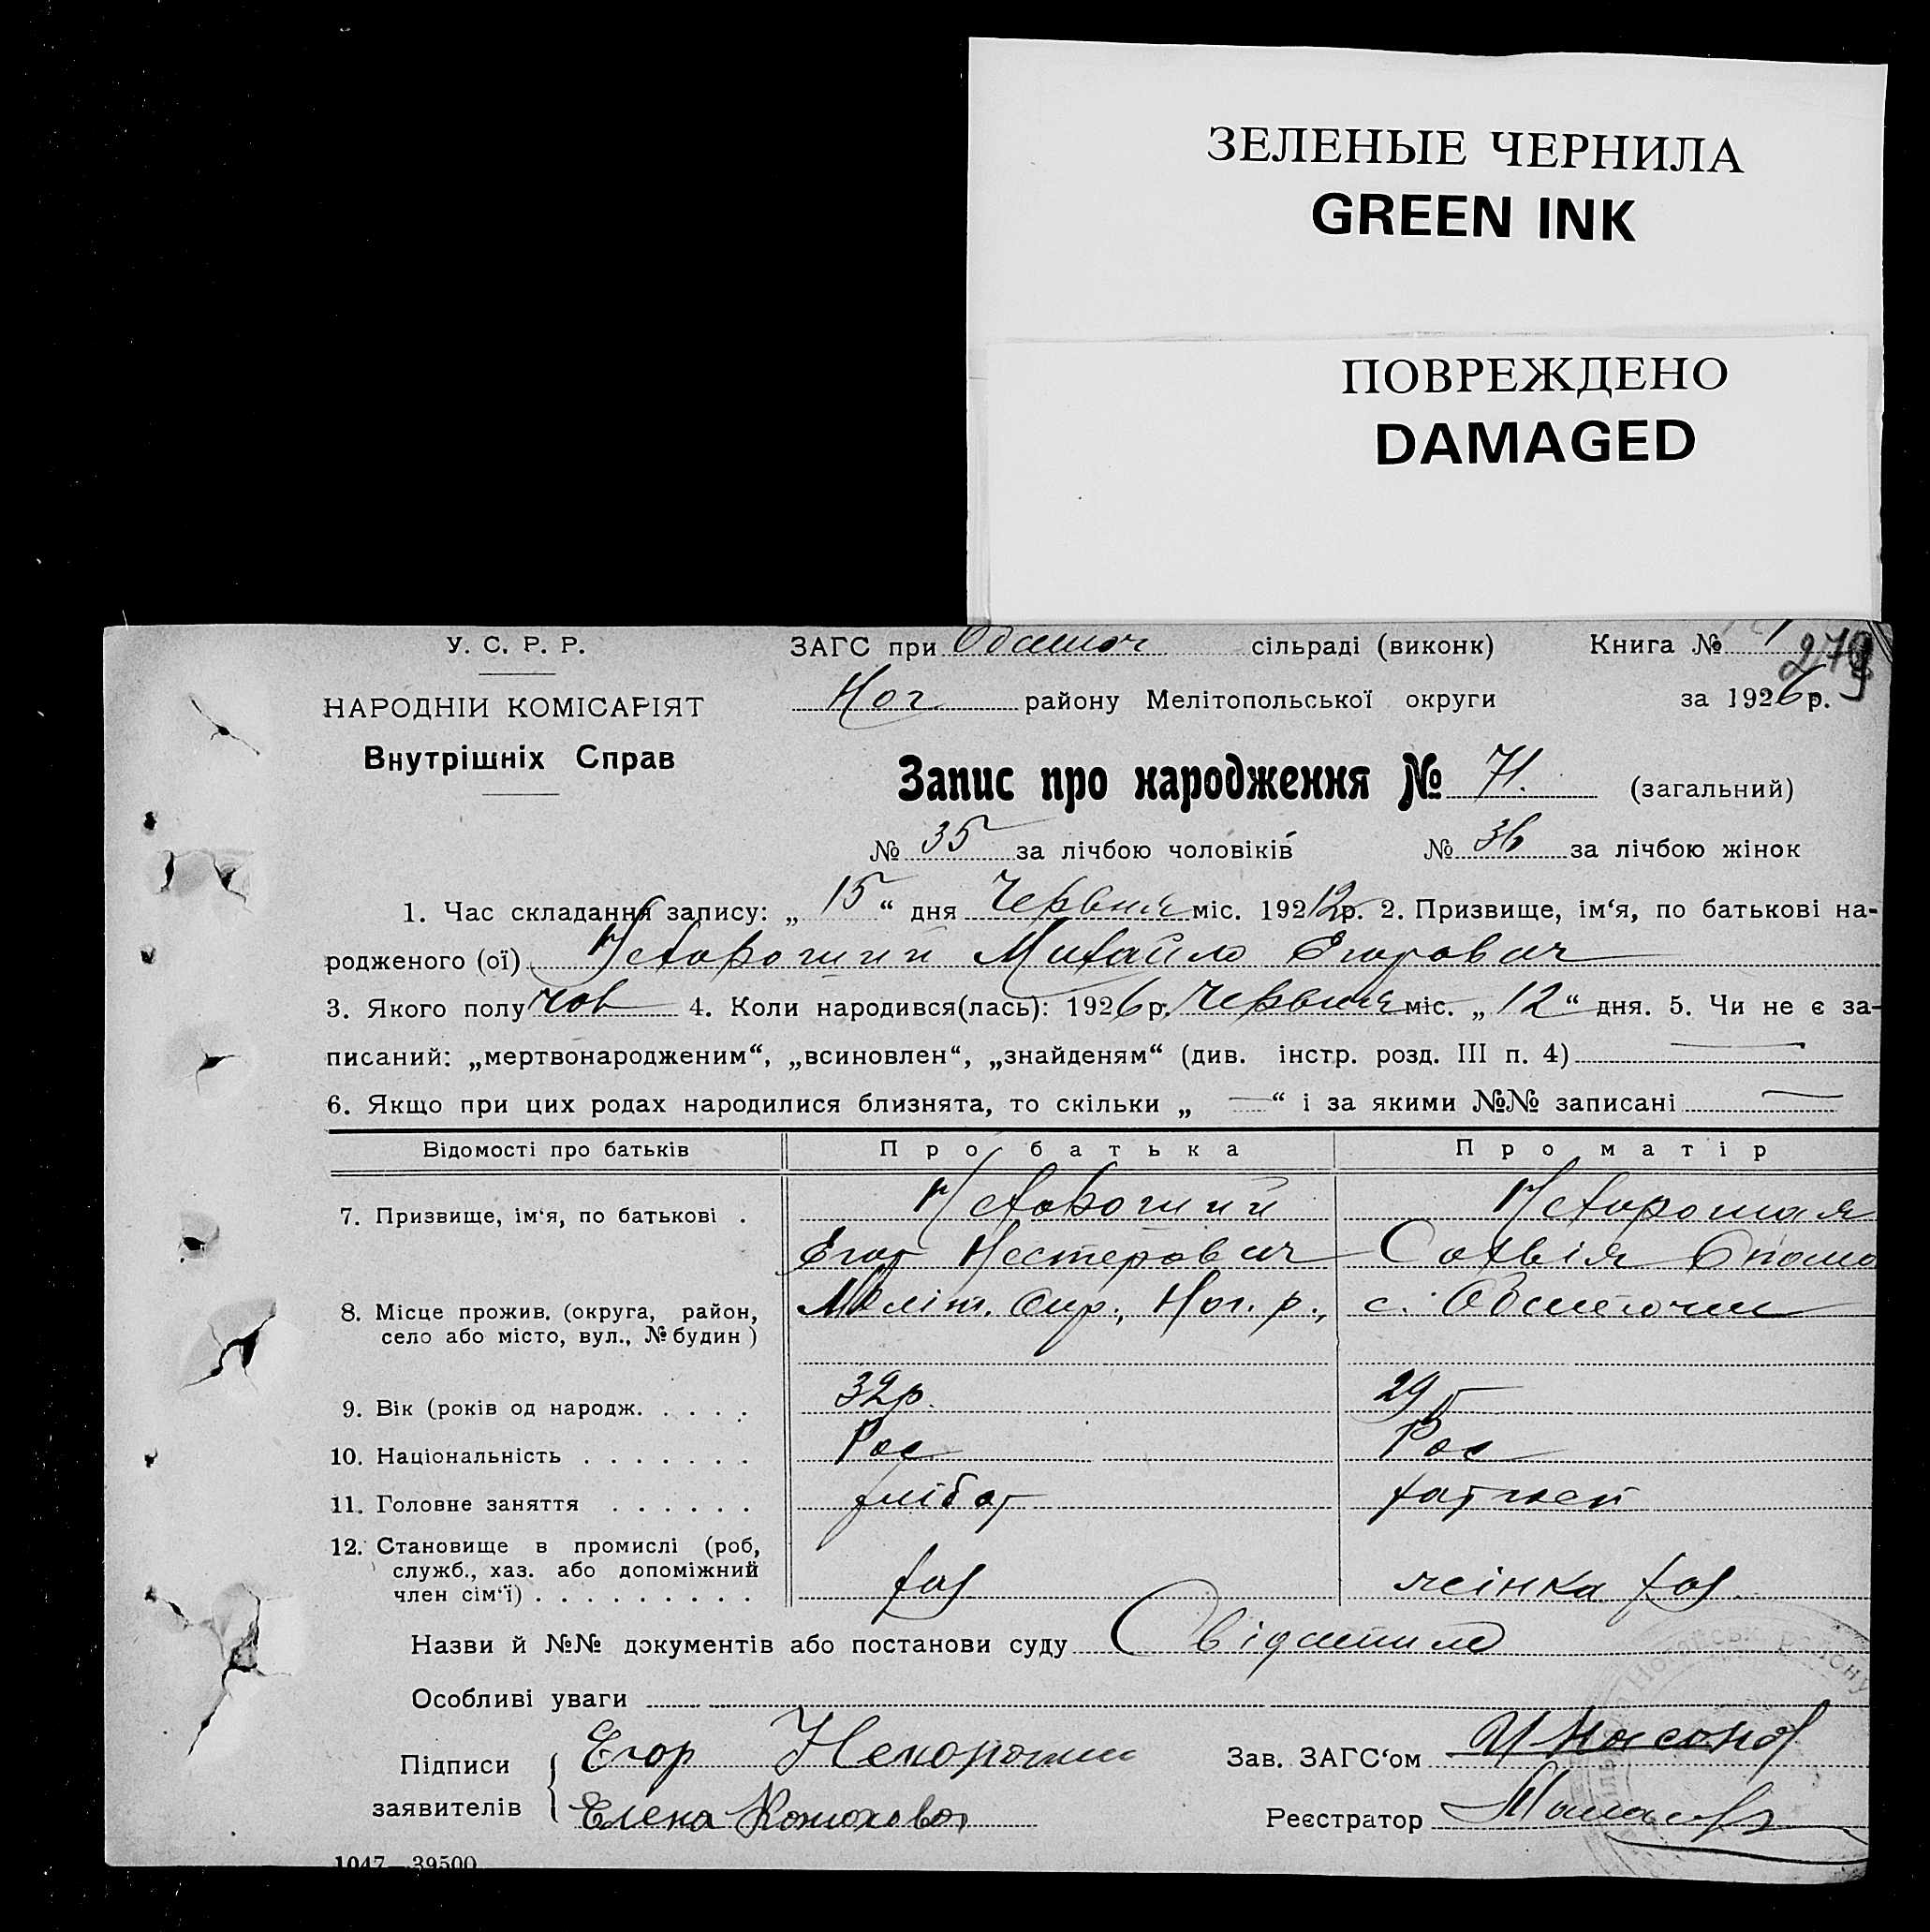 ЗЕЛЕНЫЕ ЧЕРНИЛА
GREEN INK
ПОВРЕЖДЕНО
DAMAGED
У. С. Р. Р.
ЗАГС при сільраді (виконк) Книга № 1
279
НАРОДНІЙ КОМІСАРІЯТ
Ног району Мелітопольської округи за 1926 р.
Внутрішніх Справ
Запис про народження № 71. (загальний)
№ 35 за лічбою чоловіків № 36 за лічбою жінок
1. Час складання запису: „ 15 “ дня Червня міс. 192 р. 2. Призвище, ім‘я, по батькові на-
родженого (ої) Михайло Егорович
3. Якого полу чов 4. Коли народився(лась): 1926 р. Червня міс. „ 12 “ дня. 5. Чи не є за-
писаний: „мертвонародженим“, „всиновлен“, „знайденям“ (див. інстр. розд. III п. 4)
6. Якщо при цих родах народилися близнята, то скільки „ — “ і за якими №№ записані —
Відомості про батьків Про батька Про матір
7. Призвище, ім‘я, по батькові .
Егор Нестерович Софвія
8. Місце прожив. (округа, район, село або місто, вул., № будин ) Меліт. окр., Ног. р., с. Обиточки
9. Вік (років од народж. . . . . 32 р. 29 р
10. Національність . . . . . . . Рос Рос
11. Головне заняття . . . . . . хлібор хатнєй
12. Становище в промислі (роб,
служб., хаз. або допоміжний
член сім‘ї) . . . . . . . . . хаз жінка хаз.
Назви й №№ документів або постанови суду
Особливі уваги
Підписи
заявителів
Егор
Елена
Зав. ЗАГС‘ом
Реєстратор
1047 39500